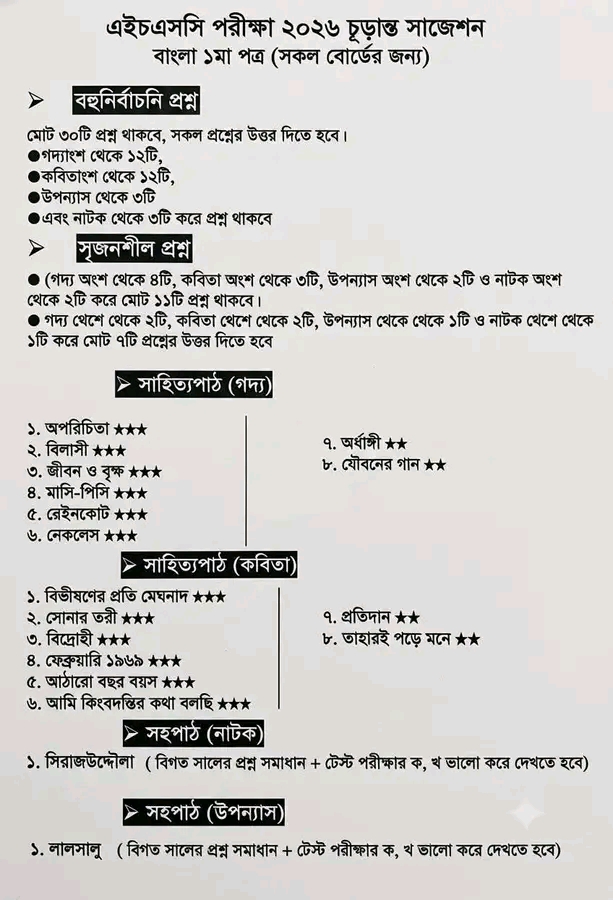 এইচএসসি পরীক্ষা ২০২৬ চূড়ান্ত সাজেশন
বাংলা ১মা পত্র (সকল বোর্ডের জন্য)
➤ বহুনির্বাচনি প্রশ্ন
মোট ৩০টি প্রশ্ন থাকবে, সকল প্রশ্নের উত্তর দিতে হবে।
●গদ্যাংশ থেকে ১২টি,
●কবিতাংশ থেকে ১২টি,
●উপন্যাস থেকে ৩টি
●এবং নাটক থেকে ৩টি করে প্রশ্ন থাকবে
➤ সৃজনশীল প্রশ্ন
● (গদ্য অংশ থেকে ৪টি, কবিতা অংশ থেকে ৩টি, উপন্যাস অংশ থেকে ২টি ও নাটক অংশ
থেকে ২টি করে মোট ১১টি প্রশ্ন থাকবে।
● গদ্য থেশে থেকে ২টি, কবিতা থেশে থেকে ২টি, উপন্যাস থেকে থেকে ১টি ও নাটক থেশে থেকে
১টি করে মোট ৭টি প্রশ্নের উত্তর দিতে হবে
➤ সাহিত্যপাঠ (গদ্য)
১. অপরিচিতা ★★★
২. বিলাসী ★★★
৩. জীবন ও বৃক্ষ ★★★
৪. মাসি-পিসি ★★★
৫. রেইনকোট ★★★
৬. নেকলেস ★★★
৭. অর্ধাঙ্গী ★★
৮. যৌবনের গান ★★
➤ সাহিত্যপাঠ (কবিতা)
১. বিভীষণের প্রতি মেঘনাদ ★★★
২. সোনার তরী ★★★
৩. বিদ্রোহী ★★★
৪. ফেব্রুয়ারি ১৯৬৯ ★★★
৫. আঠারো বছর বয়স ★★★
৬. আমি কিংবদন্তির কথা বলছি ★★★
৭. প্রতিদান ★★
৮. তাহারই পড়ে মনে ★★
➤ সহপাঠ (নাটক)
১. সিরাজউদ্দৌলা ( বিগত সালের প্রশ্ন সমাধান + টেস্ট পরীক্ষার ক, খ ভালো করে দেখতে হবে)
➤ সহপাঠ (উপন্যাস)
১. লালসালু ( বিগত সালের প্রশ্ন সমাধান + টেস্ট পরীক্ষার ক, খ ভালো করে দেখতে হবে)